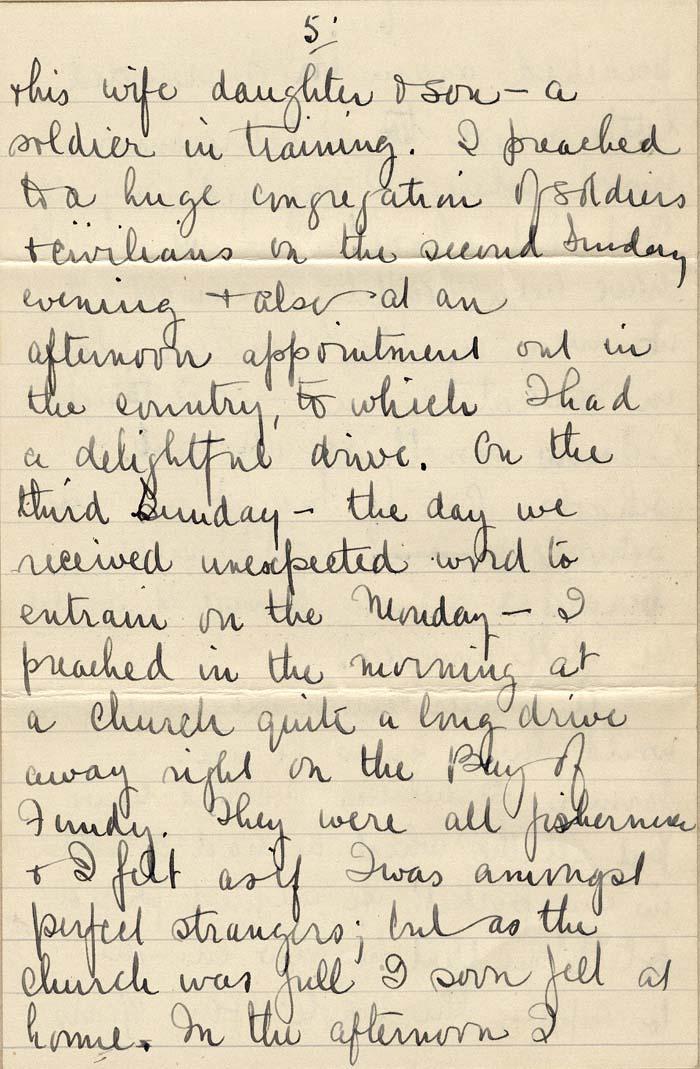 5.
& his wife daughter & son – a
soldier in training. I preached
to a huge congregation of soldiers
& civilians on the second Sunday
evening & also at an
afternoon appointment out in
the country, to which I had
a delightful drive. On the
third Sunday – the day we
received unexpected word to
entrain on the Monday – I
preached in the morning at
a church quite a long drive
away right on the Bay of
Fundy. They were all fishermen
& I felt as if I was amongst
perfect strangers; but as the
church was full I soon felt at
home. In the afternoon I